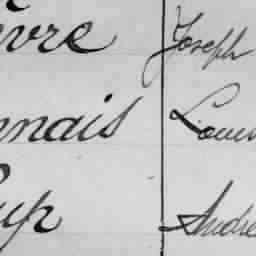 èvre Joseph
nnais Louis
up André